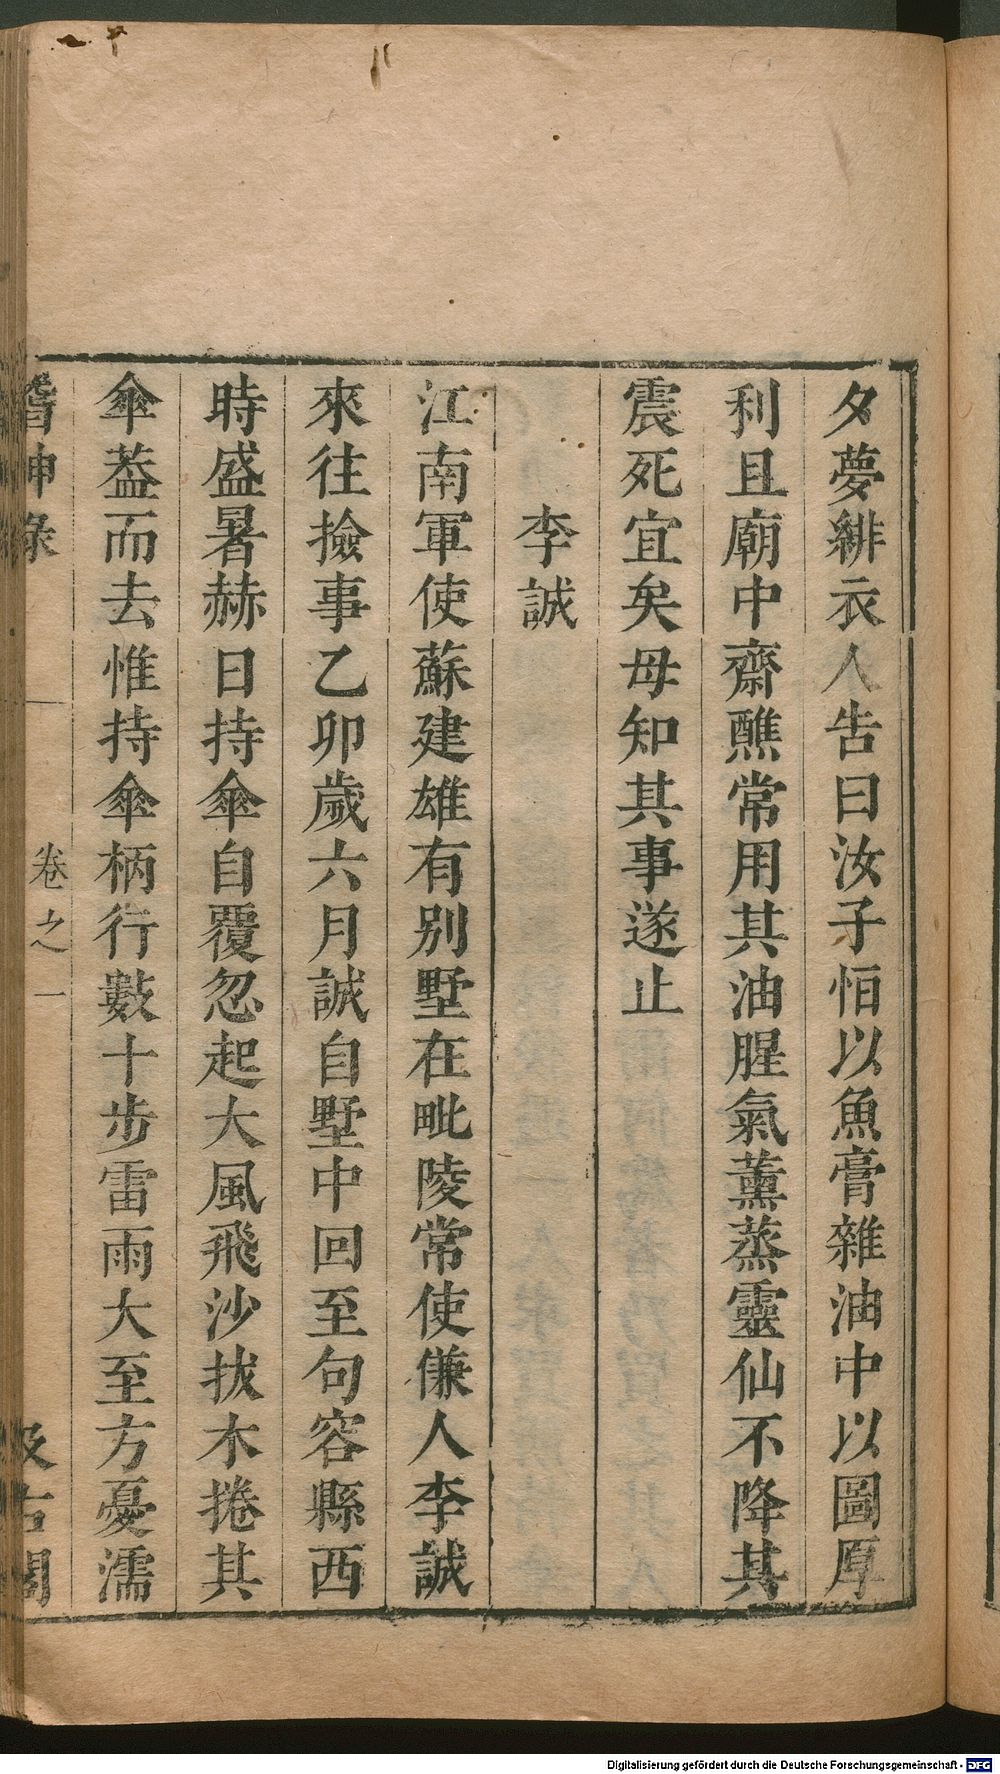 夕夢緋衣人告曰汝子恒以魚膏雜油中以圖厚
利且廟中齋醮常用其油腥氣薰蒸靈仙不降其
震死宜矣母知其事遂止
李誠
江南軍使蘇建雄有別墅在毗陵常使傔人李誠
來往撿事乙卯歲六月誠自墅中回至句容縣西
時盛暑赫日持傘自覆忽起大風飛沙拔木捲其
傘葢而去惟持傘柄行數十步雷雨大至方憂濡
稽神錄 卷之一 汲古閣
Digitalisierung gefördert durch die Deutsche Forschungsgemeinschaft - DFG